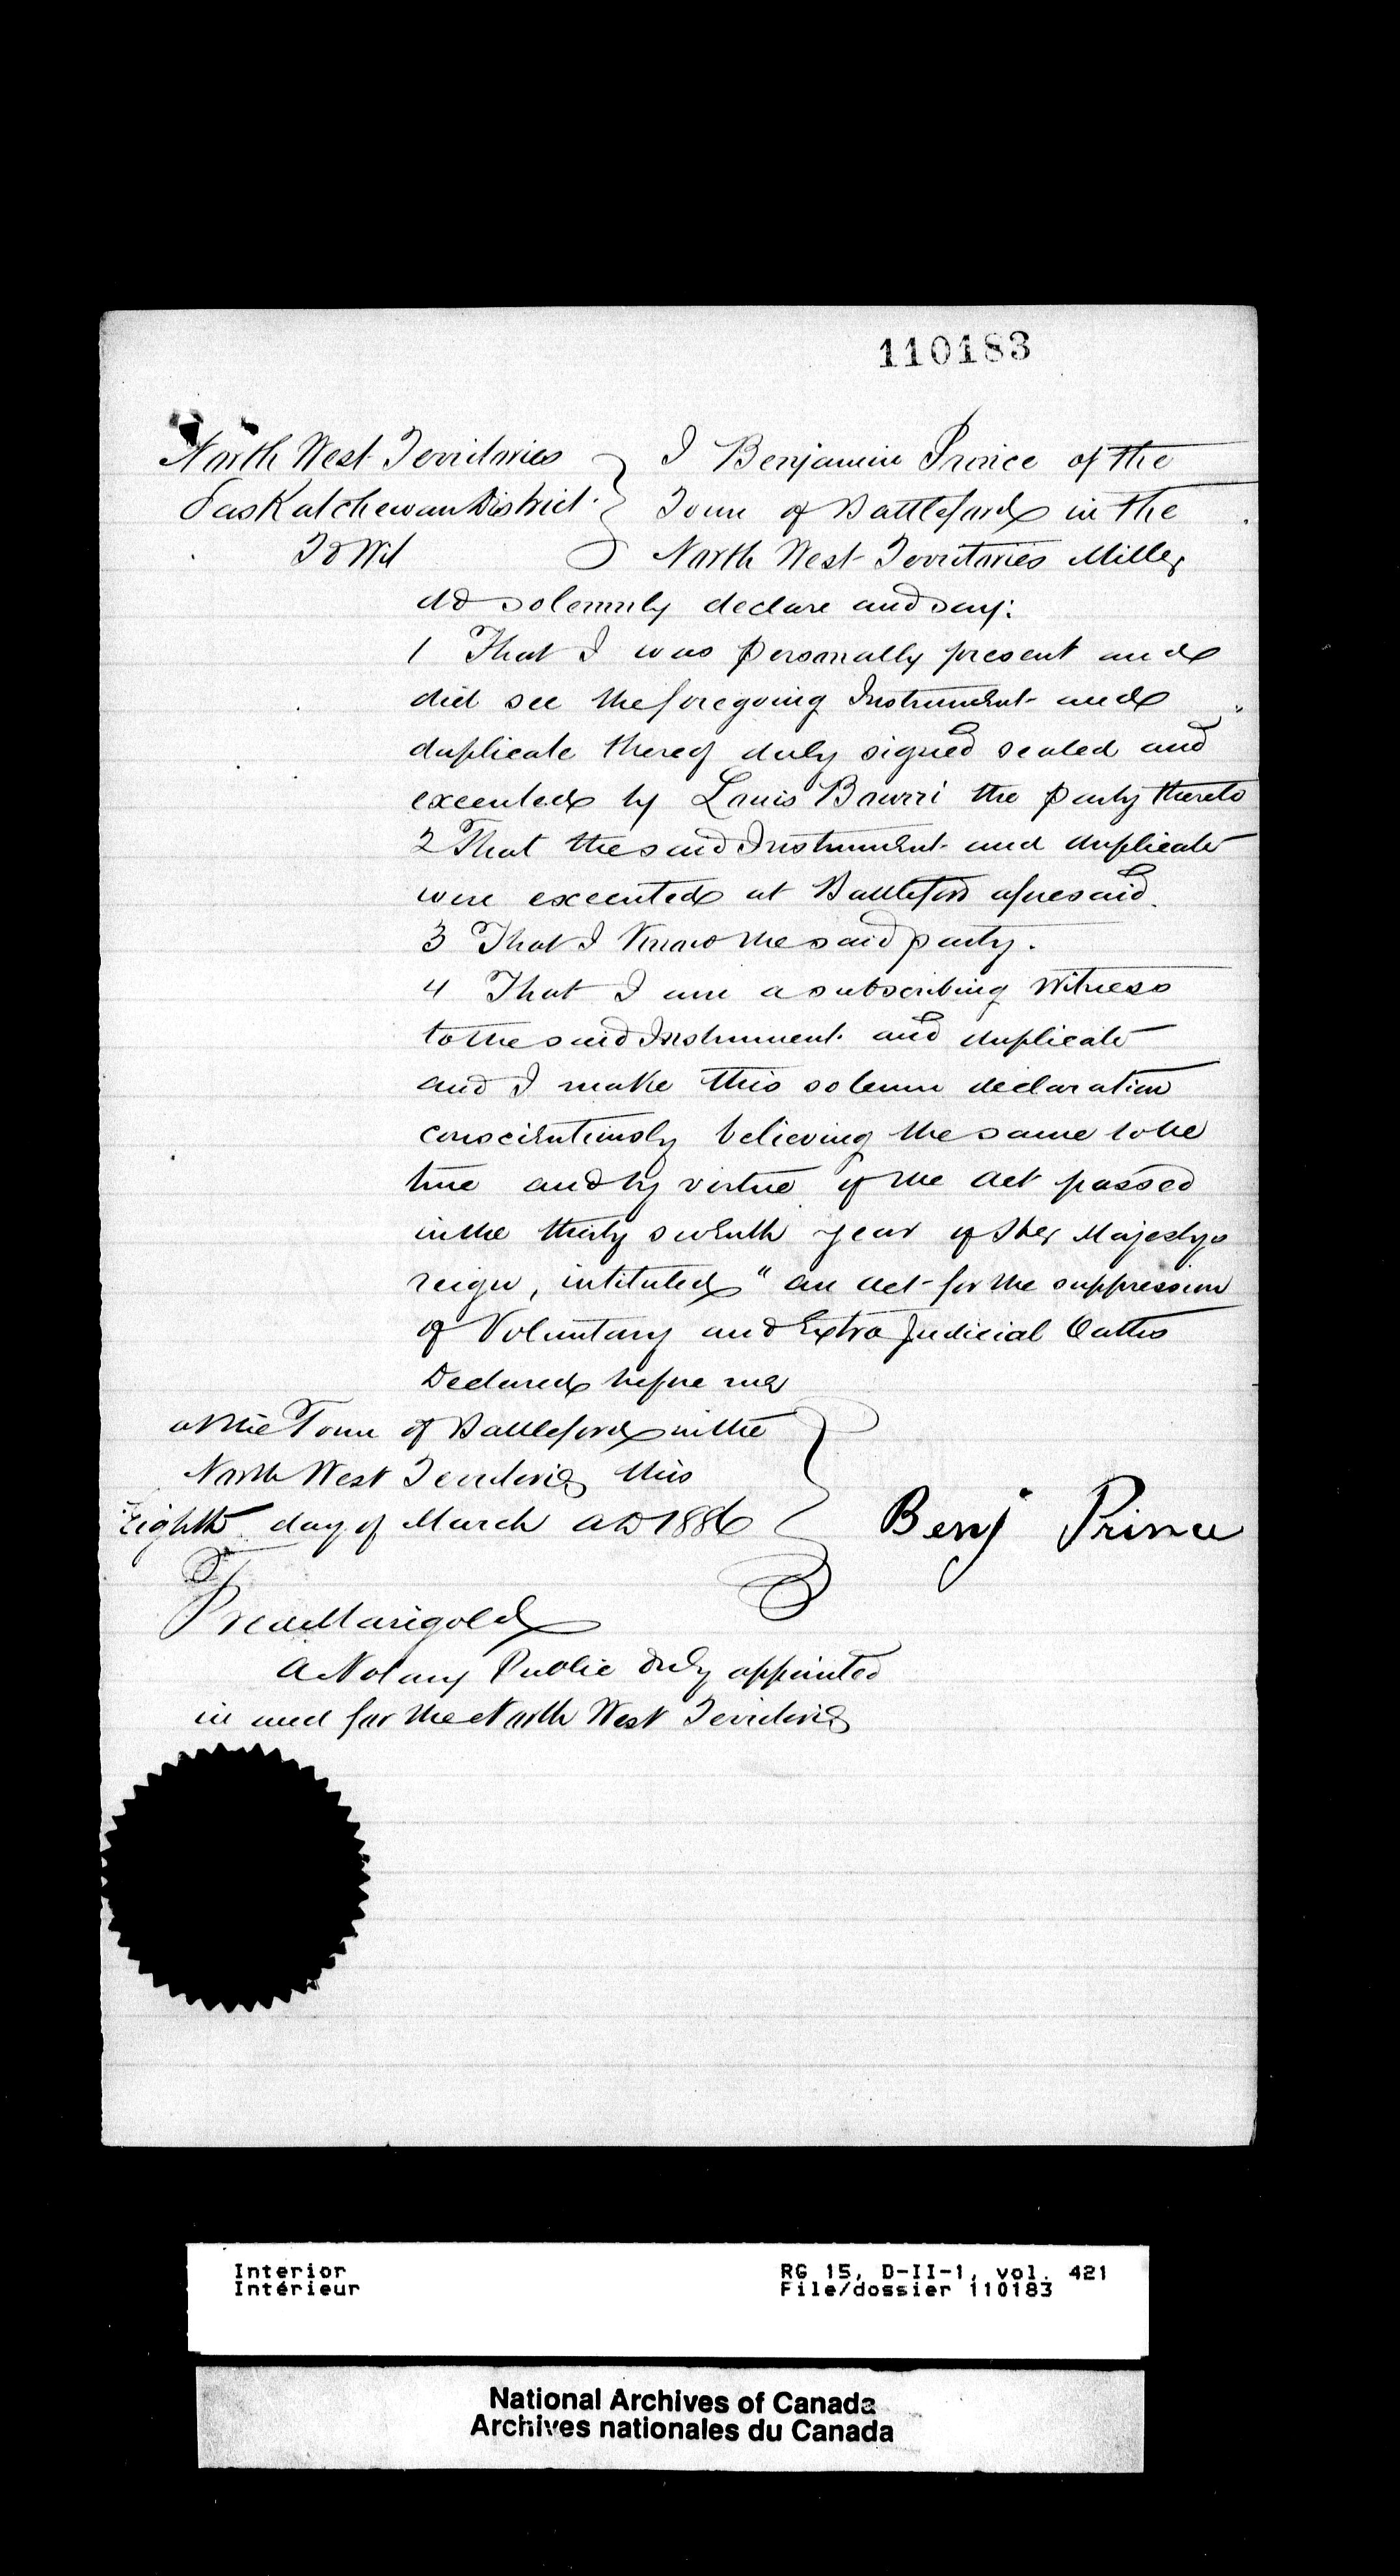 110183
North West Territories } I Benjamin Prince of the
Saskatchewan District } Town of Battleford in the
To Wit } North West Territories Miller
do solemnly declare and say:
1 That I was personally present and
did see the foregoing Instrument and
duplicate thereof duly signed sealed and
executed by Louis the party thereto
2 That the said Instrument and duplicate
were executed at Battleford aforesaid.
3 That I know the said party.
4 That I am a subscribing witness
to the said Instrument and duplicate
and I make this solemn declaration
conscientiously believing the same to be
true and by virtue of the Act passed
in the thirty seventh year of Her Majestys
reign, intituled " an act for the suppression
of Voluntary and Extra Judicial Oaths
Declared before me
at the Town of Battleford in the
North West Territories this
Eighth day of March AD 1886 } Benj Prince
Marigold
A Notary Public duly appointed
in and for the North West Territories
Interior RG 15, D-II-1, vol. 421
Intérieur File/dossier 110183
National Archives of Canada
Archives nationales du Canada